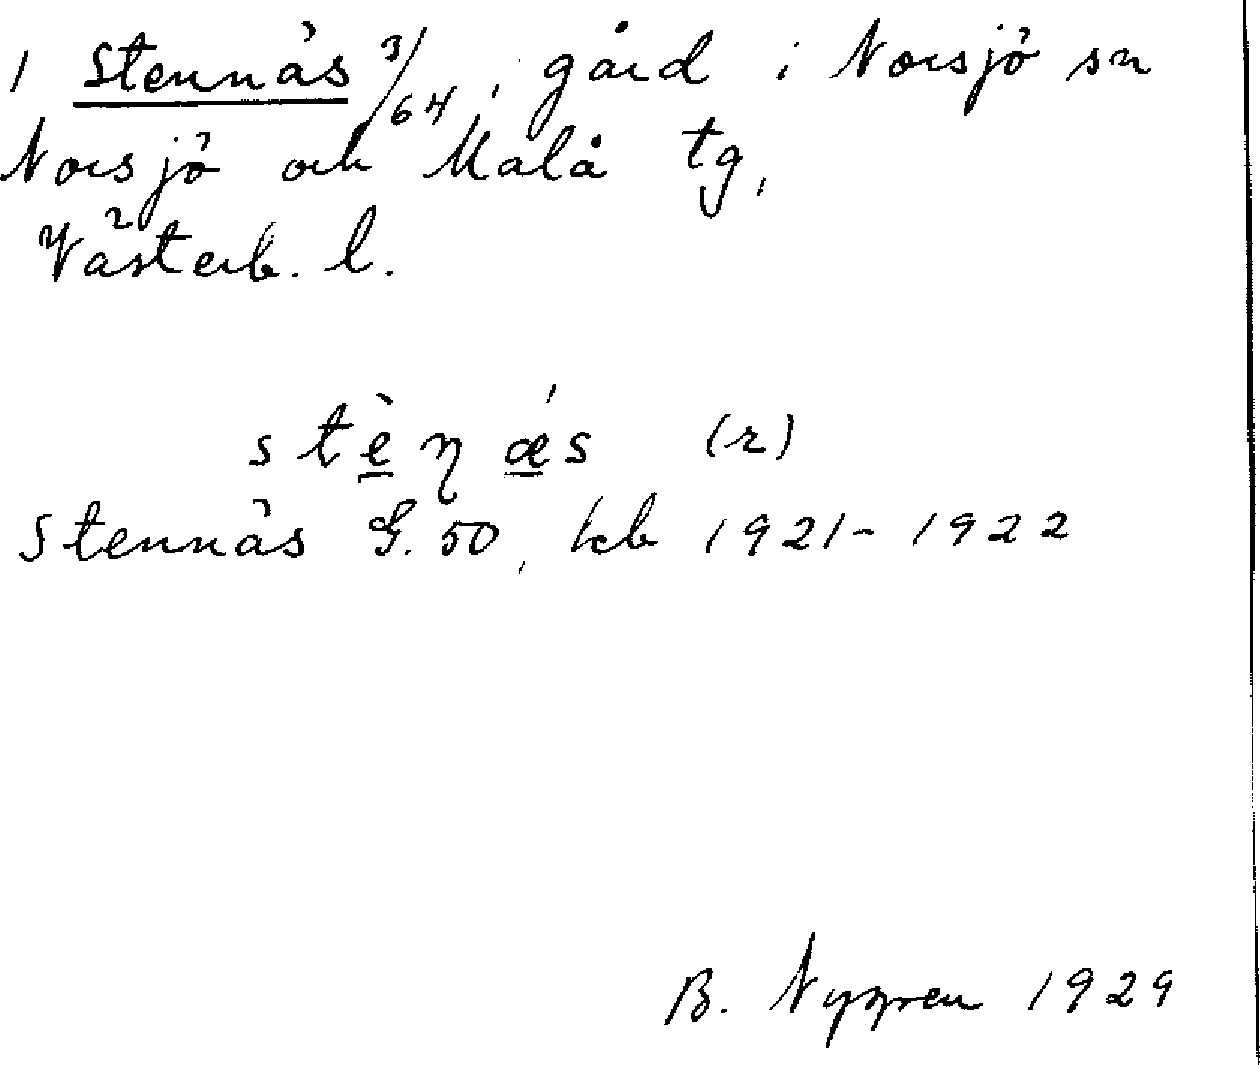 1 Stennäs 3/64, gård i Norsjö sn
Norsjö och Malå tg,
Västerb. l.
stèŋǽs (r)
Stennäs G. 50, kb 1921-1922
B. Nygren 1929